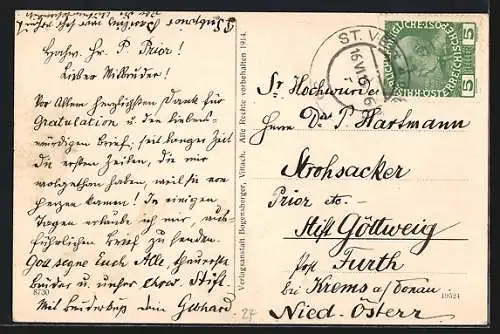 Hochw. Hr. P. Prior!
Lieber Mitbruder!
Vor Allem herzlichsten Dank für
Gratulation u. den liebens-
würdigen Brief; seit langer Zeit
die ersten Zeilen, die mir
wohlgethan haben, weil sie von
Herzen kamen! In einigen
Tagen erlaube ich mir, aus-
führlichen Brief zu senden.
Gott segne Euch Alle, theuerste
Brüder u. unser ehrw. Stift.
Mit Bruderkuß Dein Gebhard.
8730
Verlagsanstalt Bogensburger, Villach. Alle Rechte vorbehalten 1914.
ST. VEIT
16 VI 16
5 5
Sr Hochwürden
Herrn Dr. P. Hartmann
Strohsacker
Prior etc.
Stift Göttweig
Post Furth
bei Krems a/Donau
Nied.-Österr.
19524
24